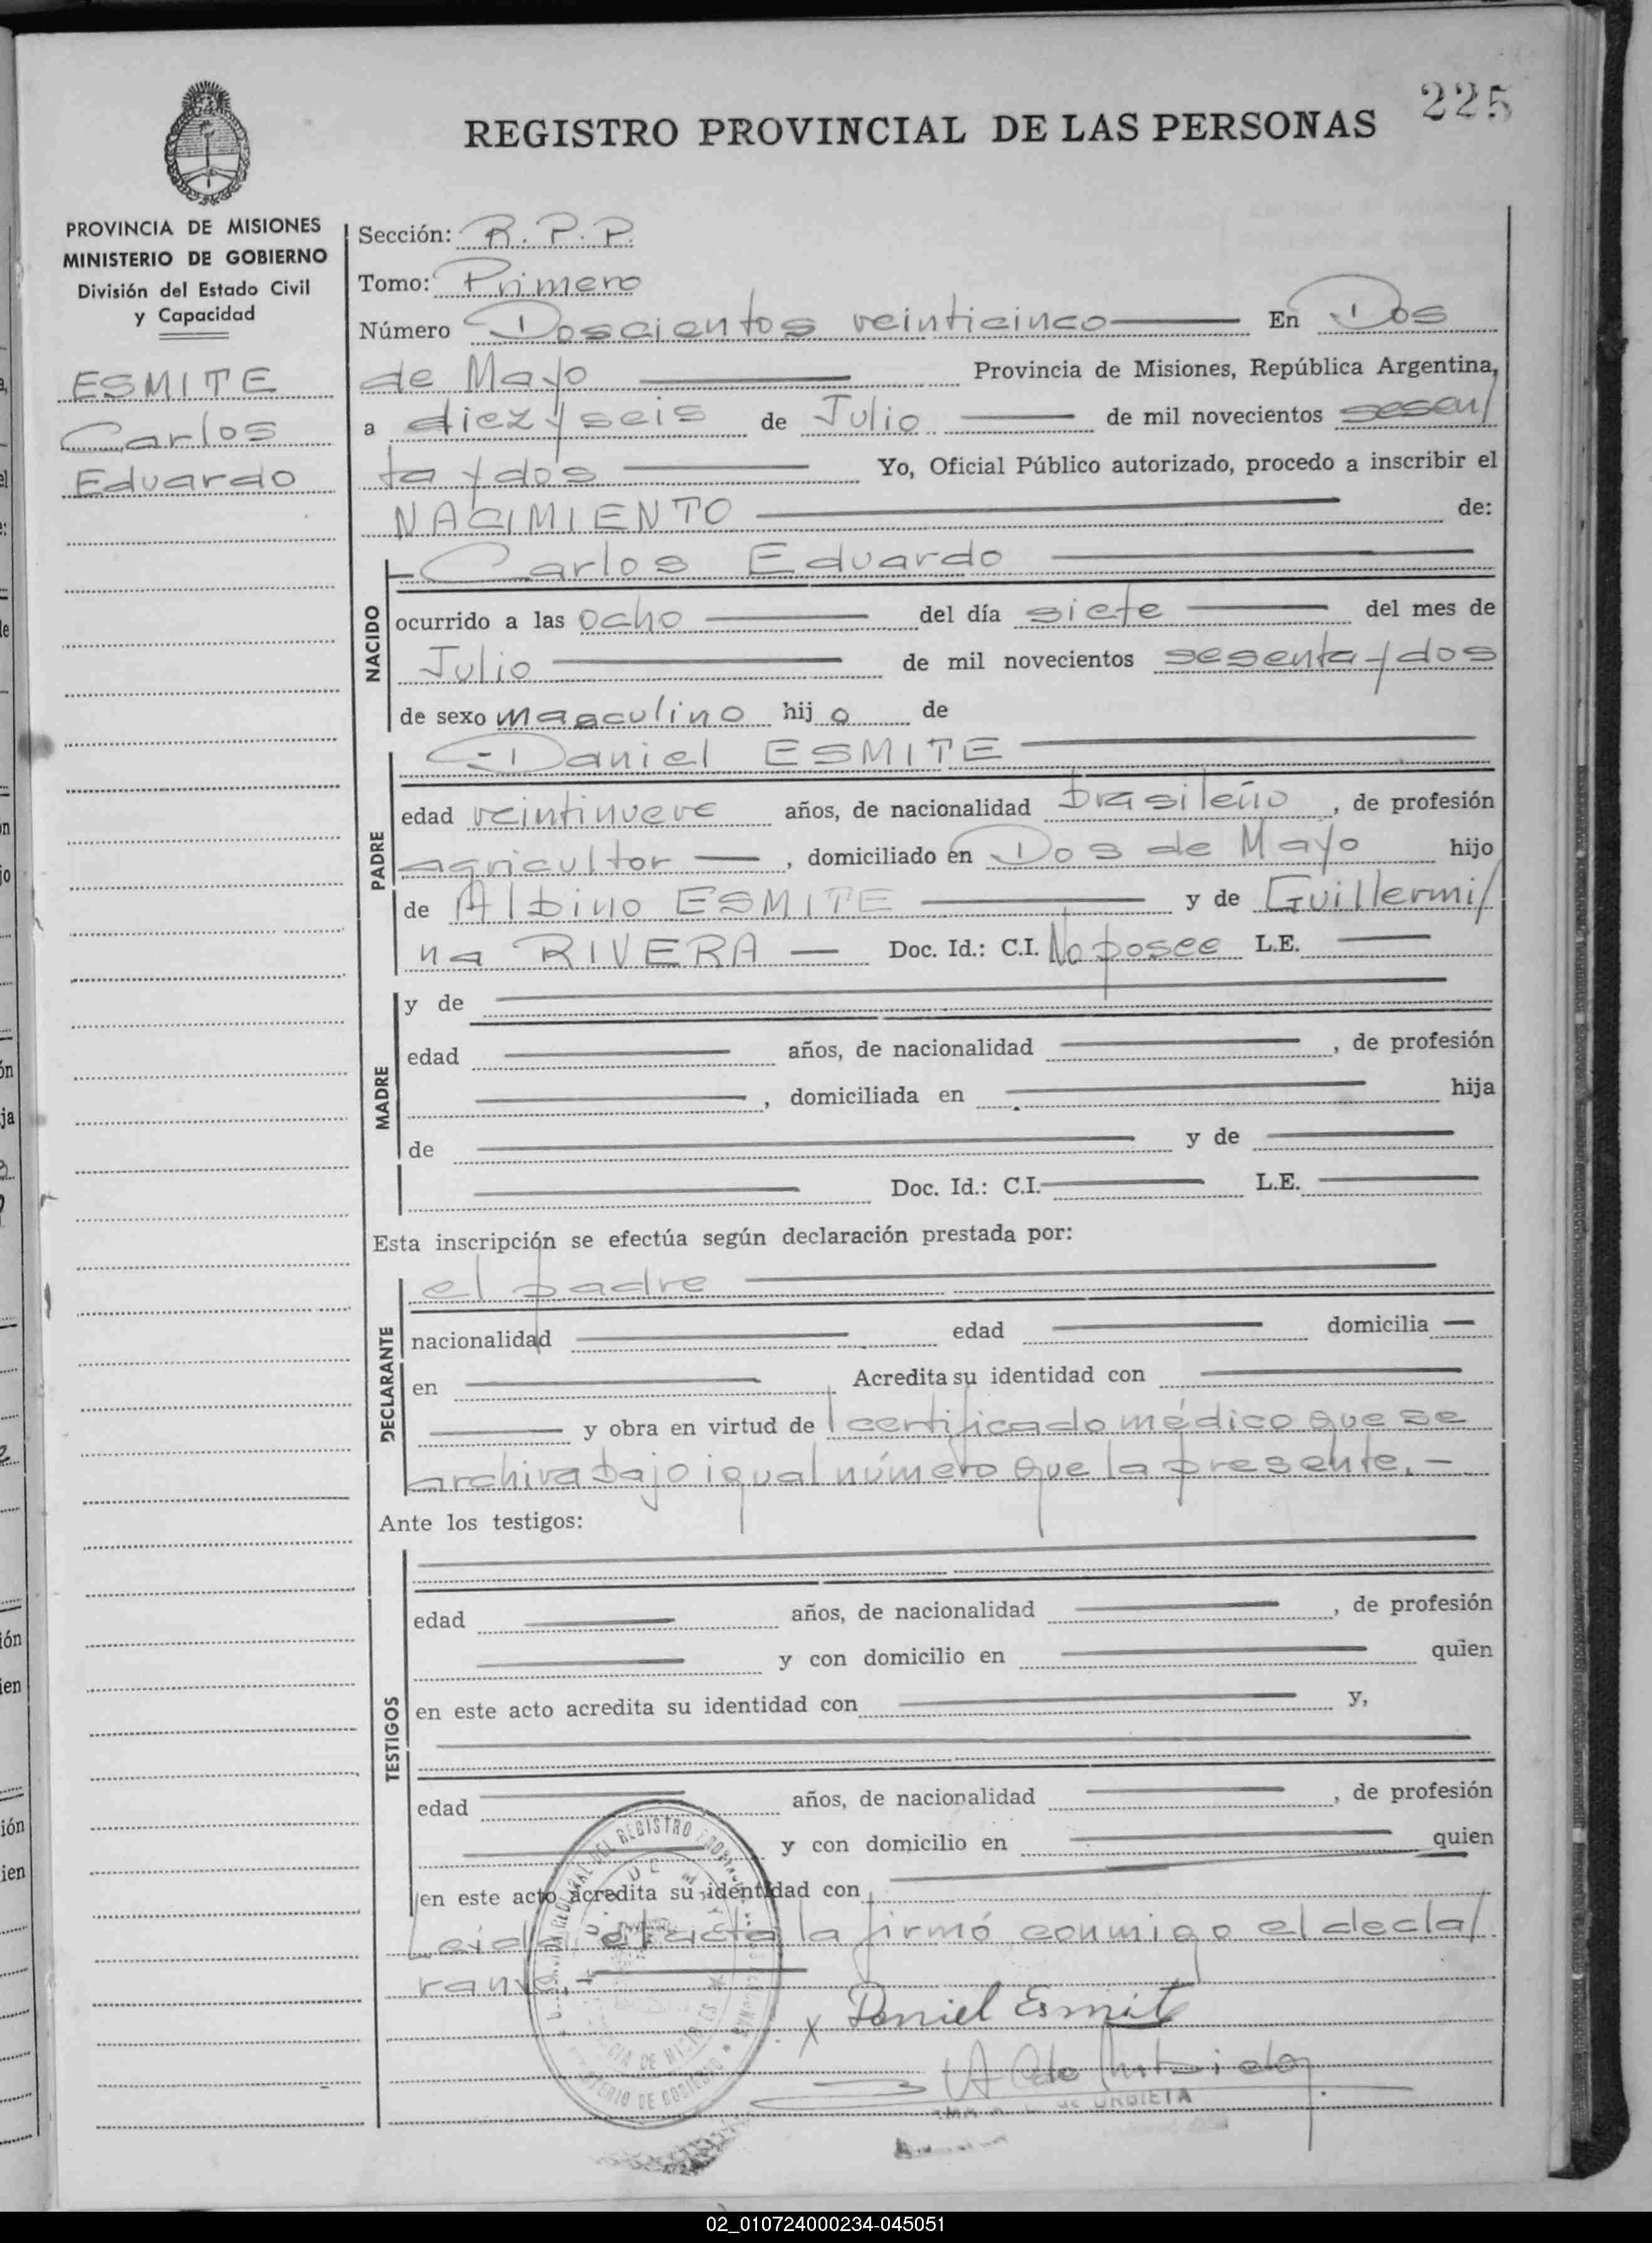 225
REGISTRO PROVINCIAL DE LAS PERSONAS
PROVINCIA DE MISIONES
MINISTERIO DE GOBIERNO
División del Estado Civil
y Capacidad
ESMITE
Carlos
Eduardo
Sección: R. P. P.
Tomo: Primero
Número Doscientos veinticinco En Dos
de Mayo Provincia de Misiones, República Argentina,
a diez y seis de Julio de mil novecientos sesen/
ta y dos Yo, Oficial Público autorizado, procedo a inscribir el
NACIMIENTO de:
NACIDO
Carlos Eduardo
ocurrido a las ocho del día siete del mes de
Julio de mil novecientos sesenta y dos
de sexo masculino hijo de
PADRE
Daniel ESMITE
edad veintinueve años, de nacionalidad brasileño, de profesión
agricultor, domiciliado en Dos de Mayo hijo
de Albino ESMITE y de Guillermi/
na RIVERA Doc. Id.: C.I. No posee L.E.
MADRE
y de
edad años, de nacionalidad , de profesión
, domiciliada en hija
de y de
Doc. Id.: C.I. L.E.
Esta inscripción se efectúa según declaración prestada por:
DECLARANTE
el padre
nacionalidad edad domicilia
en Acredita su identidad con
y obra en virtud de l certificado médico que se
archiva bajo igual número que la presente.-
Ante los testigos:
TESTIGOS
edad años, de nacionalidad , de profesión
y con domicilio en quien
en este acto acredita su identidad con y,
edad años, de nacionalidad , de profesión
y con domicilio en quien
en este acto acredita su identidad con
Leída el acta la firmó conmigo el decla/
rante.
x Daniel Esmite
DE URBIETA
02_010724000234-045051